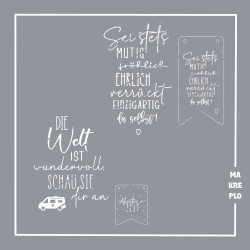 Sei stets
MUTIG
fröhlich
EHRLICH
verrückt
EINZIGARTIG
du selbst!
Sei stets
MUTIG
fröhlich
EHRLICH
verrückt
EINZIGARTIG
du selbst!
DIE
Welt
IST
wundervoll.
SCHAU SIE
dir an
ZEIT
MA
KRE
PLO